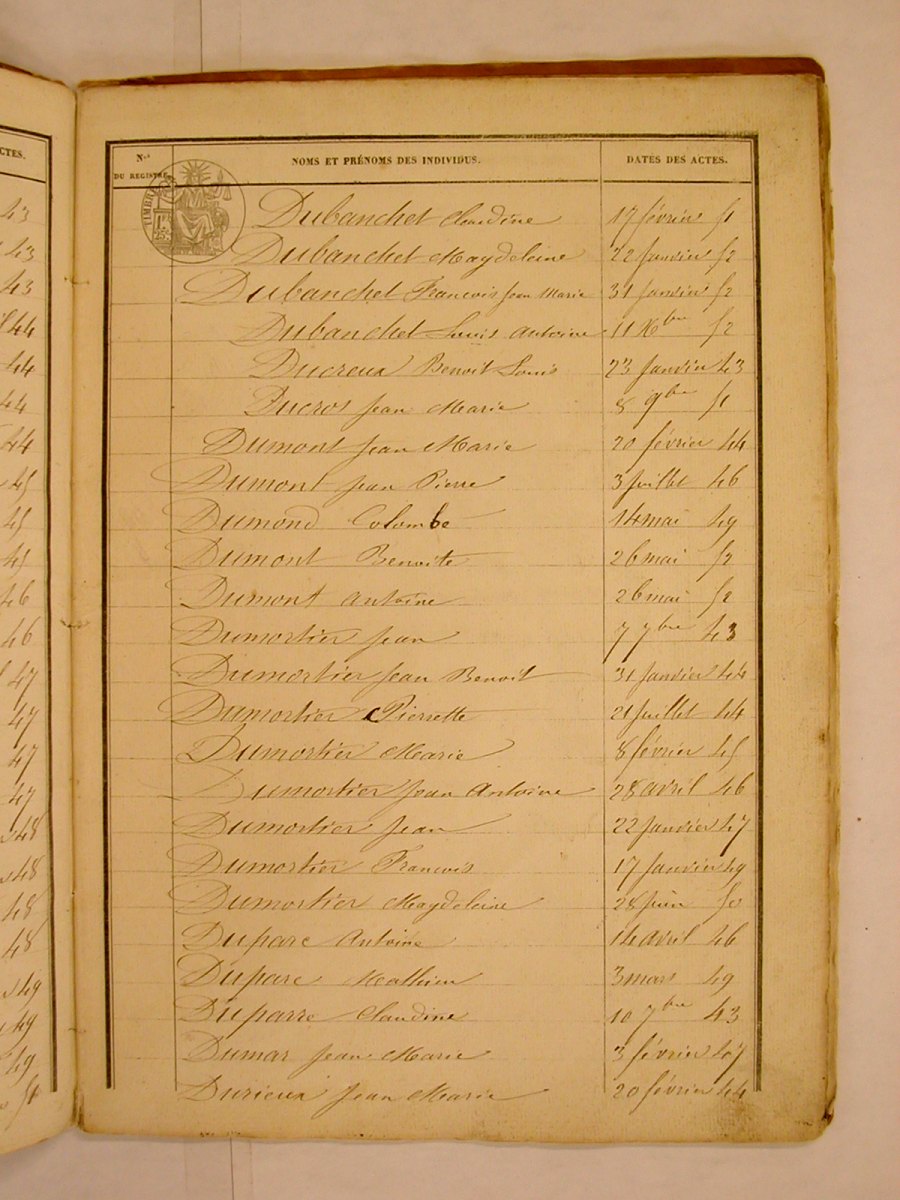 CTES.
43
43
43
44
44
44
44
45
45
45
46
46
47
47
47
47
48
48
48
48
49
49
49
51
Nos DU REGISTRE
NOMS ET PRÉNOMS DES INDIVIDUS.
DATES DES ACTES.
TIMBRE
Dubanchet Claudine 17 février 51
Dubanchet Magdeleine 22 Janvier 52
Dubanchet Francois Jean Marie 31 Janvier 52
Dubanchet Louis Antoine 11 Xbre 52
Ducreux Benoit Louis 23 Janvier 43
Ducros Jean Marie 8 9bre 51
Dumont Jean Marie 20 février 44
Dumont Jean Pierre 3 Juillet 46
Dumond Colombe 14 mai 49
Dumont Benoite 26 mai 52
Dumont Antoine 26 mai 52
Dumortier Jean 7 7bre 43
Dumortier Jean Benoit 31 Janvier 44
Dumortier Pierrette 21 Juillet 44
Dumortier Marie 8 février 45
Dumortier Jean Antoine 28 avril 46
Dumortier Jean 22 Janvier 47
Dumortier Francois 17 Janvier 49
Dumortier Magdeleine 28 Juin 50
Duparc Antoine 14 avril 46
Duparc Mathieu 3 mars 49
Duparre Claudine 10 7bre 43
Dumar Jean Marie 3 février 47
Durieux Jean Marie 20 février 44